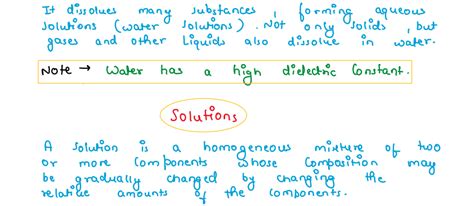 It dissolves many substances, forming aqueous
solutions (water solutions). Not only solids, but
gases and other liquids also dissolve in water.
Note → Water has a high dielectric Constant.
Solutions
A solution is a homogeneous mixture of two
or more components whose composition may
be gradually changed by changing the
relative amounts of the components.